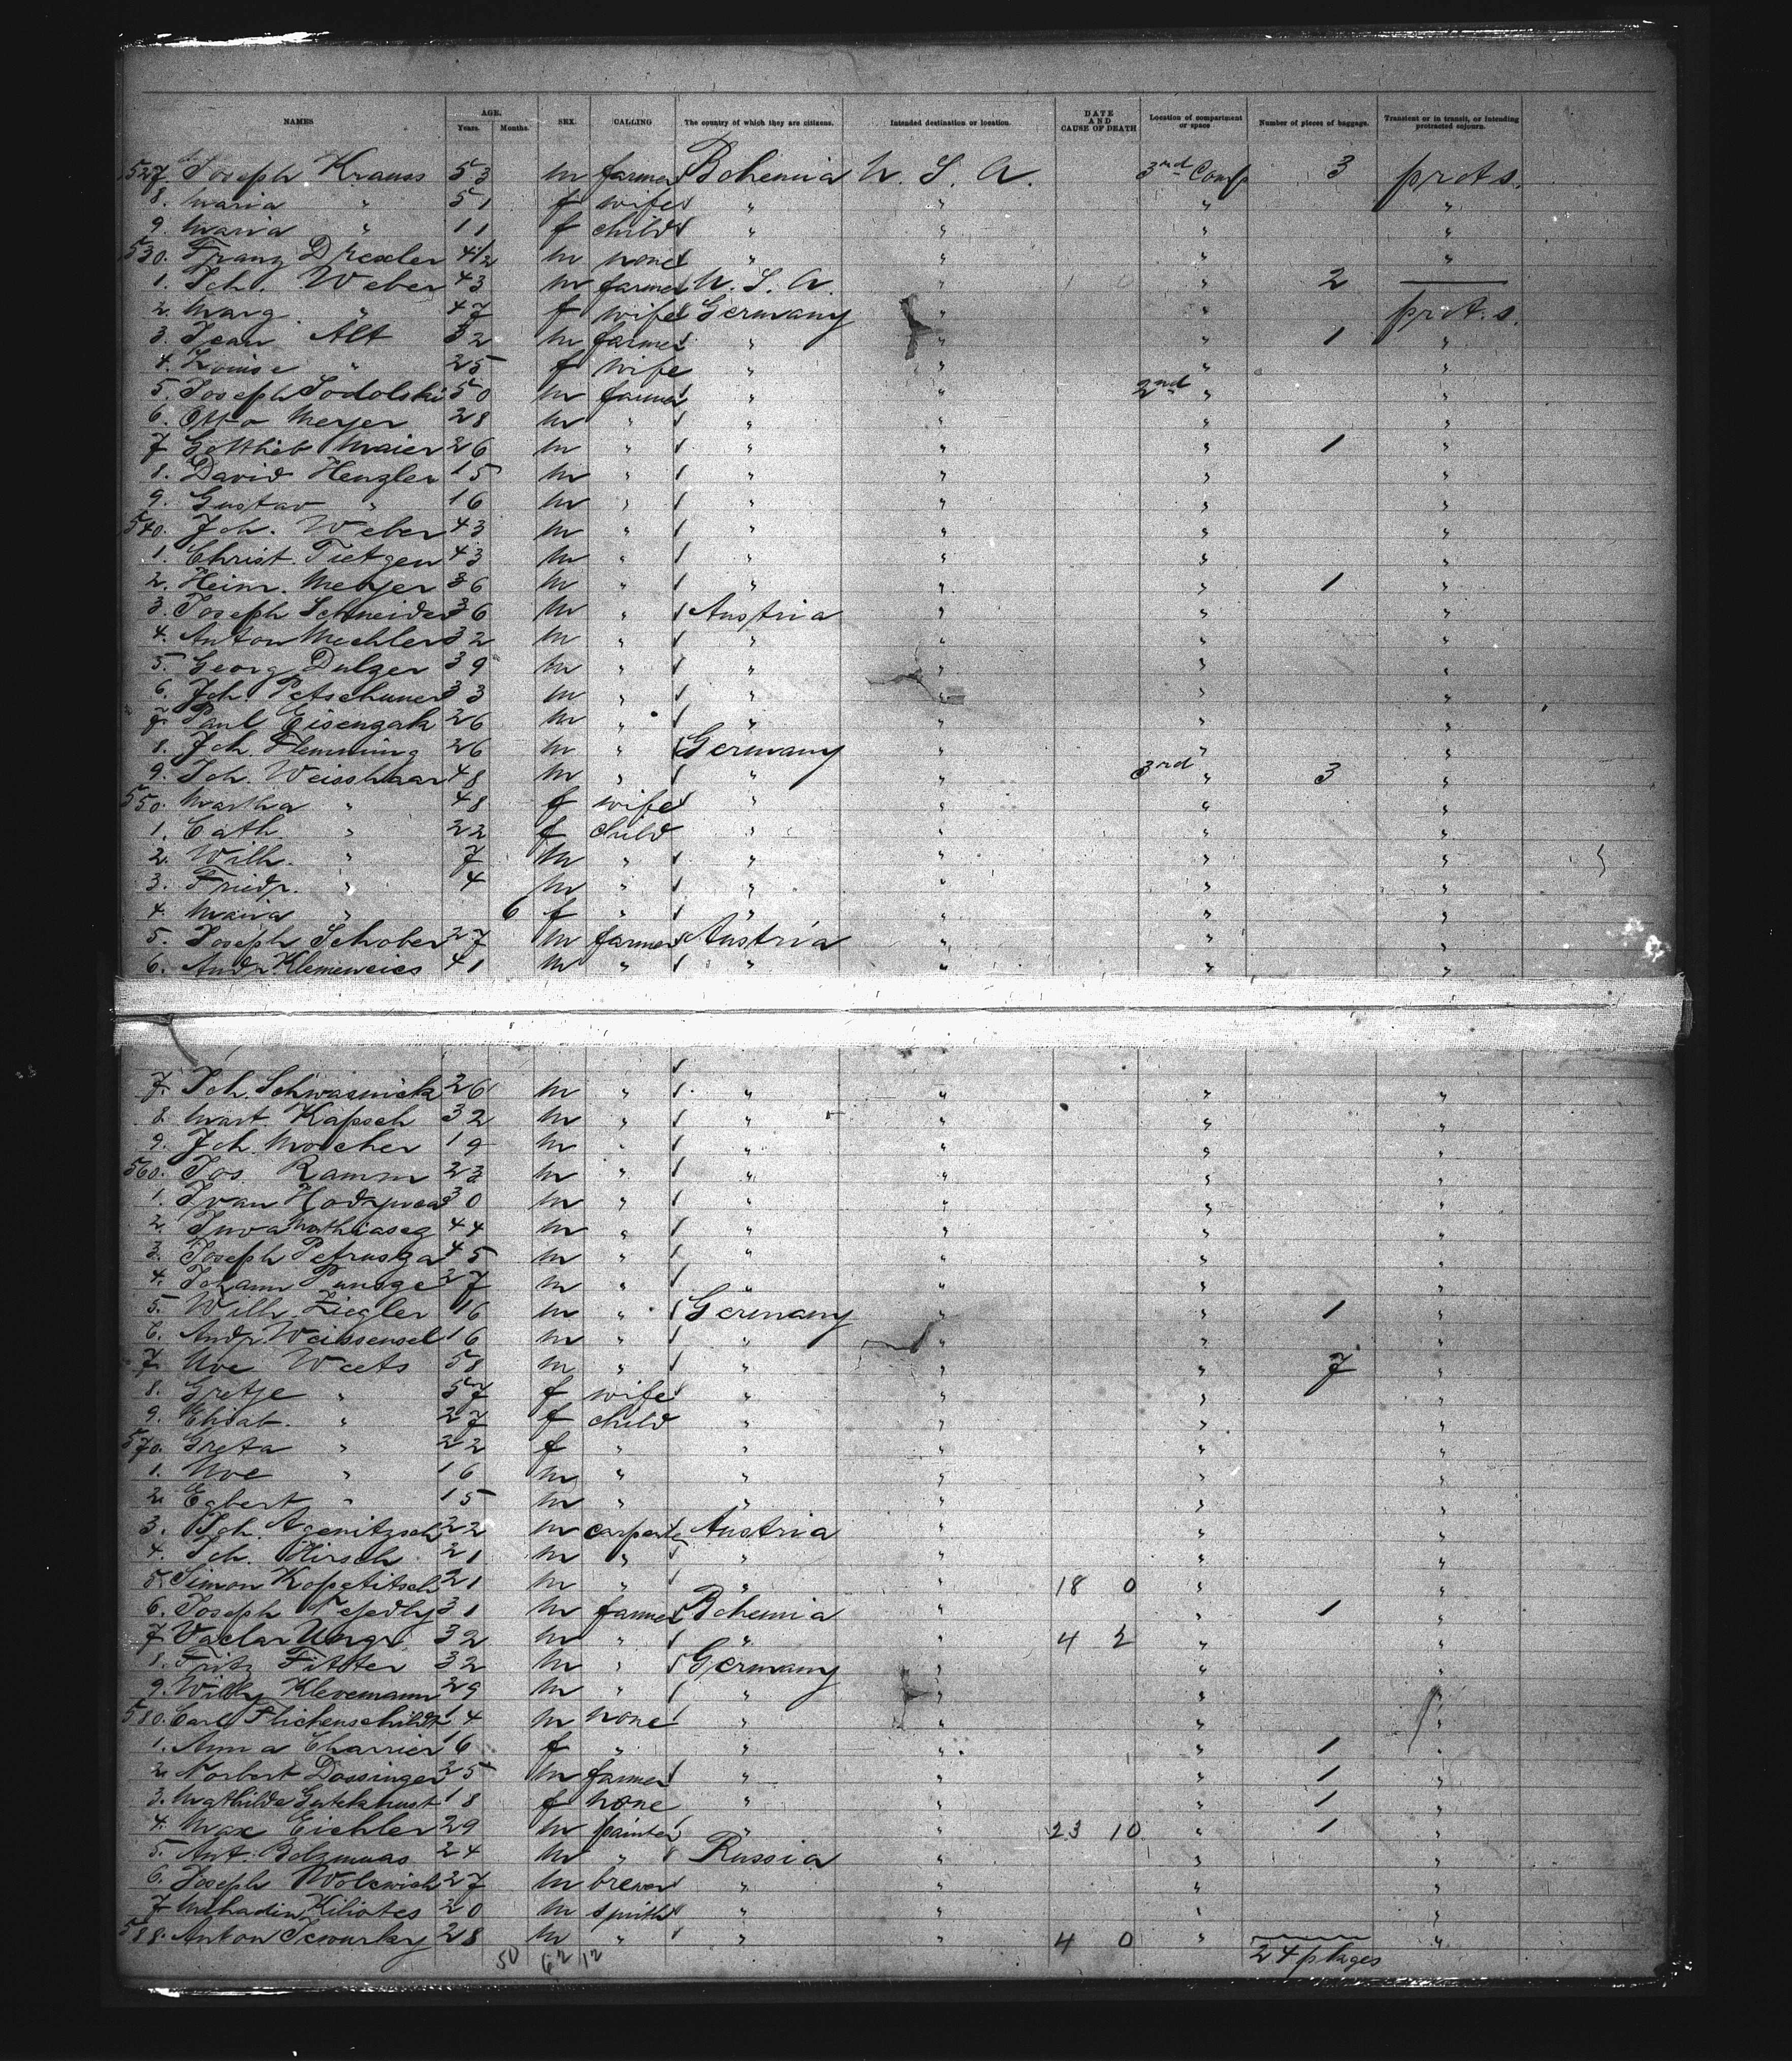 NAMES AGE. Years. Months. SEX. CALLING The country of which they are citizens. Intended destination or location. DATE AND CAUSE OF DEATH Location of compartment or space Number of pieces of baggage. Transient or in transit, or intending protracted sojourn.
527. Joseph Krauss 53 m farmer Bohemia U. S. A. 3rd Comp 3 prot s.
8. Maria " 51 f wife " " " "
9. Maria " 11 f child " " " "
530. Franz Drexler 4 1/2 m none " " " "
1. Joh. Weber 43 m farmer U. S. A. " " 2 —
2. Marg. " 47 f wife Germany " " prot. s.
3. Jean Alt 32 m farmer " " " 1 "
4. Louise " 25 f wife " " " "
5. Joseph Sodolski 50 m farmer " " 2nd " "
6. Otto Meyer 28 m " " " " "
7 Gottlieb Maier 26 m " " " " 1 "
8. David Henzler 15 m " " " " "
9. Gustav " 16 m " " " " "
540. Joh. Weber 43 m " " " " "
1. Christ. Tietgen 43 m " " " " "
2. Heinr. Meyer 36 m " " " " 1 "
3. Joseph Schneider 36 m " Austria " " "
4. Anton Mechler 32 m " " " " "
5. Georg Dulzer 39 m " " " " "
6. Joh. Petschuner 33 m " " " " "
7. Paul Eisenzak 26 m " " " " "
8. Joh. Flemming 26 m " Germany " " "
9. Joh. Weisshaar 48 m " " " 3rd " 3 "
550. Martha " 48 f wife " " " "
1. Cath. " 22 f child " " " "
2. Wilh. " 7 m " " " " "
3. Friedr. " 4 m " " " " "
4. Maria " 6 f " " " " "
5. Joseph Schober 27 m farmer Austria " " "
6. Andr. Klemeweies 41 m " " " " "
7. Joh. Schwasnick 26 m " " " " "
8. Mart. Kapsch 32 m " " " " "
9. Joh. Motcher 19 m " " " " "
560. Jos. Ramm 23 m " " " " "
1. Ivan 30 m " " " " "
2. Mathiaseg 44 m " " " " "
3. Joseph Petrusza 45 m " " " " "
4. Johann 27 m " " " " "
5. Wilh. Ziegler 16 m " Germany " " 1 "
6. Andr. Weissensel 16 m " " " " "
7. Uve Weets 58 m " " " " 7 "
8. Gretje " 57 f wife " " " "
9. Elisab. " 27 f child " " " "
570. Greta " 22 f " " " " "
1. Uve " 16 m " " " " "
2. Egbert " 15 m " " " " "
3. Joh. Agenitzsch 22 m carpenter Austria " " "
4. Joh. Hirsch 21 m " " " " "
5. Simon Kopetitsch 21 m " " " 18 0 " "
6. Joseph Tejedly 31 m farmer Bohemia " " 1 "
7 Vaclav Ungr. 32 m " " " 4 2 " "
8. Fritz Fitter 32 m " Germany " " "
9. Willy Klevemann 29 m " " " " "
580. Carl Flickenschildt 14 m none " " " "
1. Anna Charrier 16 f " " " " 1 "
2. Norbert Dossinger 25 m farmer " " " 1 "
3. Mathilde Gutekhunst 18 f none " " " 1 "
4. Max Eichler 29 m painter " " 23 10 " 1 "
5. Ant. Belzmuas 24 m " Russia " " "
6. Joseph Wolewich 27 m brewer " " " "
7 Kiliotes 20 m smith " " " "
588. Anton 28 m " " " 4 0 " "
50 62 12 24 pkages